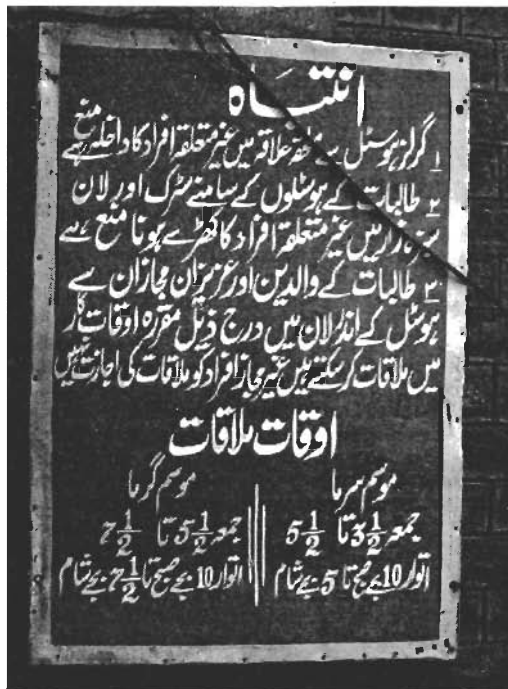 انتباہ
۱ گرلز ہوسٹل سے ملحقہ علاقہ میں غیر متعلقہ افراد کا داخلہ منع ہے
۲ طالبات کے ہوسٹلوں کے سامنے سڑک اور لان
سبزہ زار میں غیر متعلقہ افراد کا کھڑے ہونا منع ہے
۳ طالبات کے والدین اور عزیزان مجازان سے
ہوسٹل کے انڈر لان میں درج ذیل مقررہ اوقات کار
میں ملاقات کر سکتے ہیں غیر مجاز افراد کو ملاقات کی اجازت نہیں
اوقات ملاقات
موسم سرما
جمعہ 3 1/2 تا 5 1/2
اتوار 10 بجے صبح تا 5 بجے شام
موسم گرما
جمعہ 5 1/2 تا 7 1/2
اتوار 10 بجے صبح تا 7 1/2 بجے شام